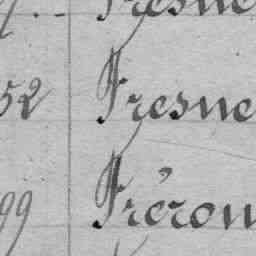 Fresne
52 Fresne
99 Fréron